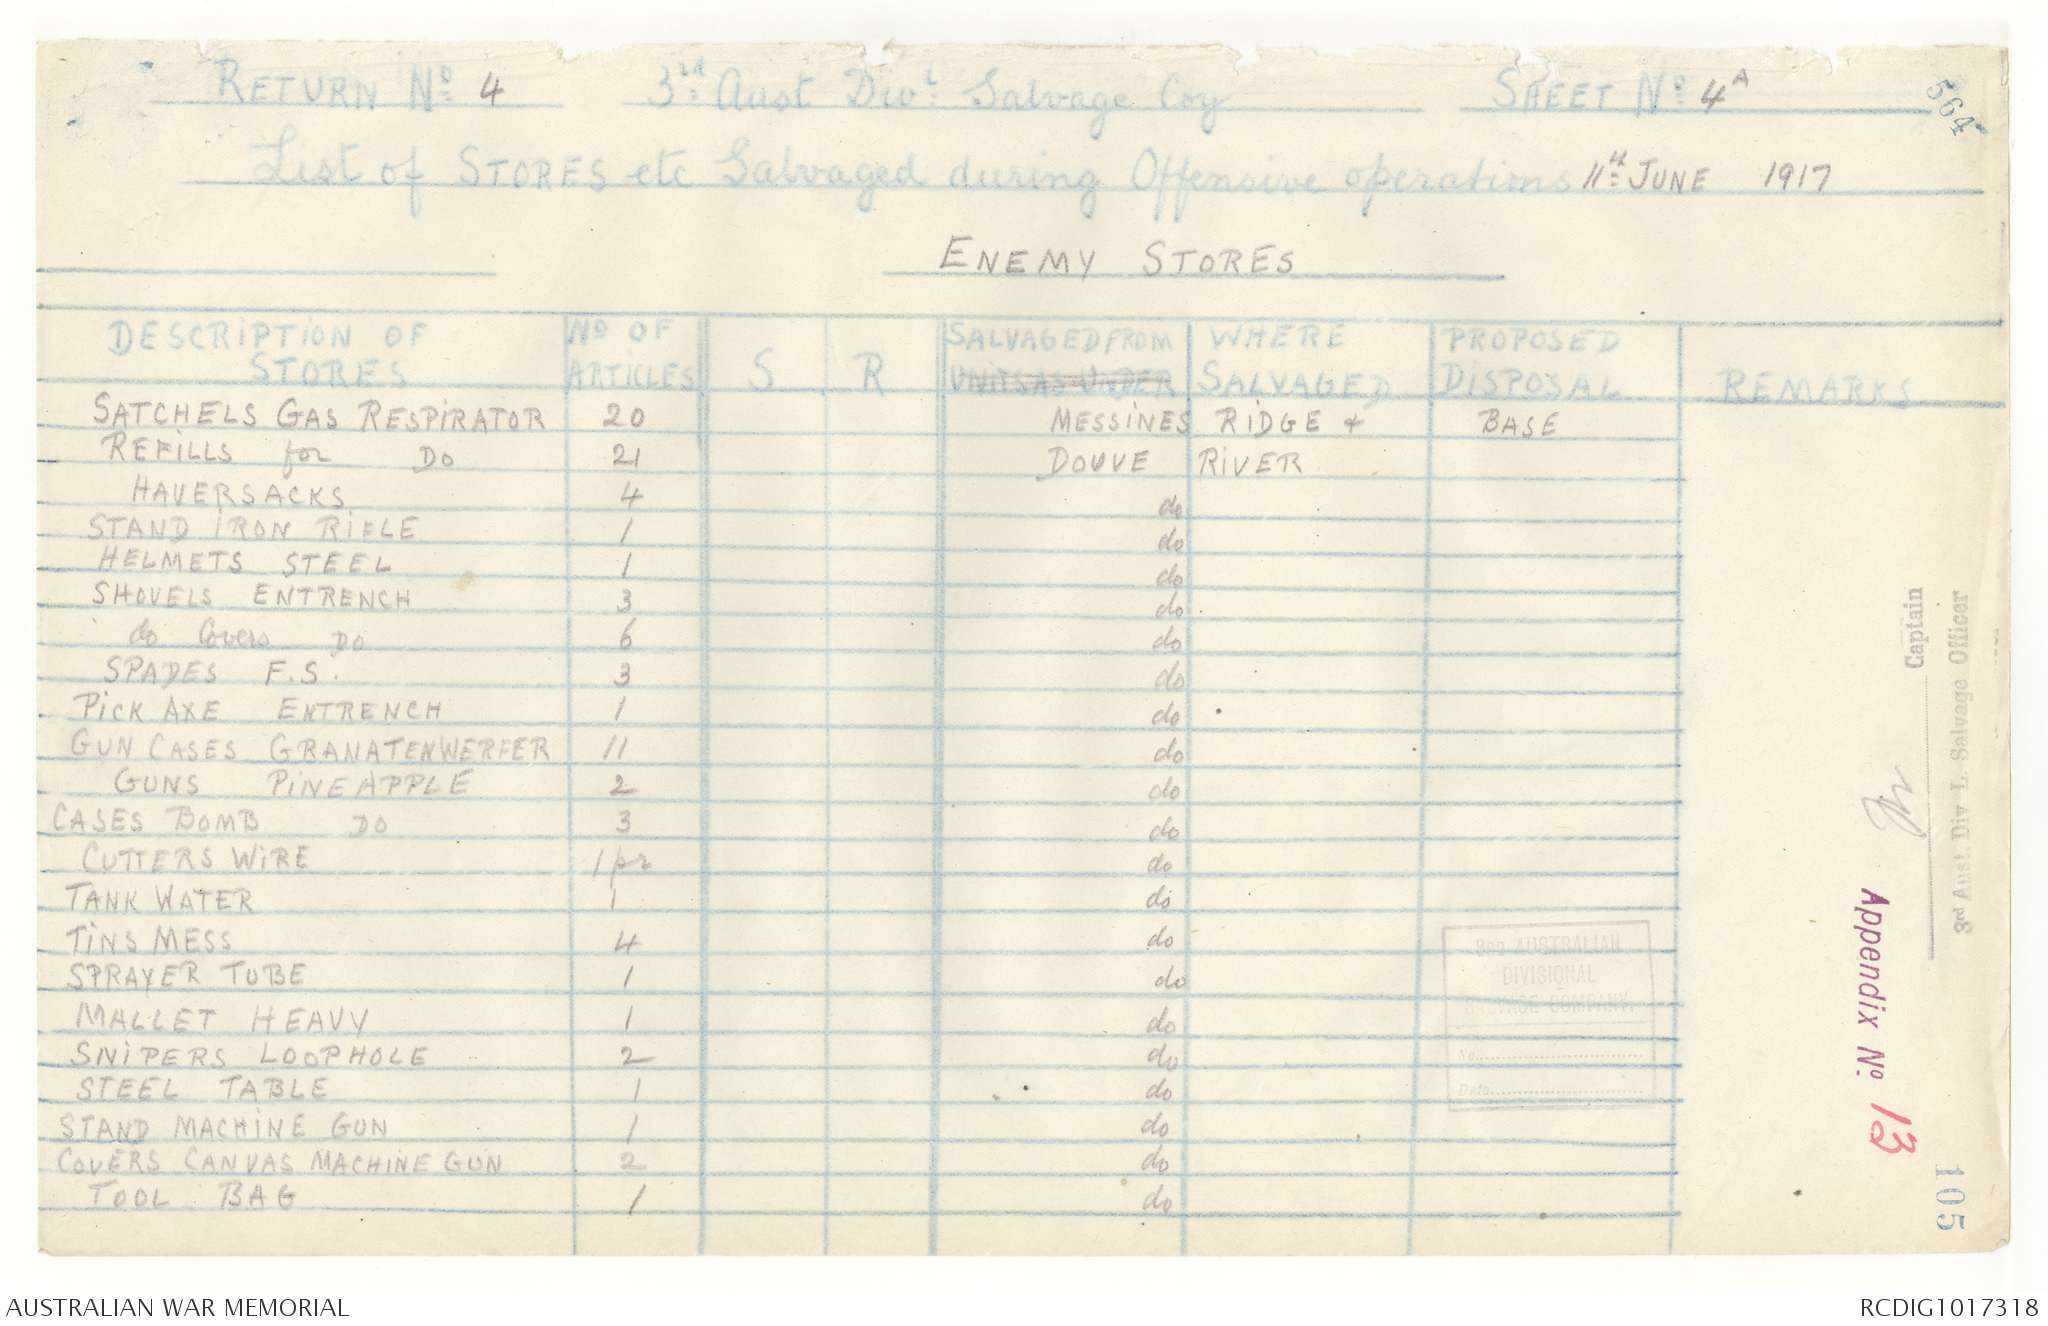 RETURN No. 4 3rd Aust Divl. Salvage Coy SHEET No. 4A
564
List of STORES etc Salvaged during Offensive operations 11th JUNE 1917
ENEMY STORES
DESCRIPTION OF STORES No OF ARTICLES S R SALVAGED FROM UNITS AS UNDER WHERE SALVAGED PROPOSED DISPOSAL REMARKS
SATCHELS GAS RESPIRATOR 20 MESSINES RIDGE + BASE
REFILLS for DO 21 DOUVE RIVER
HAVERSACKS 4 do
STAND IRON RIFLE 1 do
HELMETS STEEL 1 do
SHOVELS ENTRENCH 3 do
do Covers DO 6 do
SPADES F.S. 3 do
PICK AXE ENTRENCH 1 do
GUN CASES GRANATENWERFER 11 do
GUNS PINEAPPLE 2 do
CASES BOMB DO 3 do
CUTTERS WIRE 1 pr do
TANK WATER 1 do
TINS MESS 4 do
SPRAYER TUBE 1 do
MALLET HEAVY 1 do
SNIPERS LOOPHOLE 2 do
STEEL TABLE 1 do
STAND MACHINE GUN 1 do
COVERS CANVAS MACHINE GUN 2 do
TOOL BAG 1 do
3RD AUSTRALIAN
DIVISIONAL
SALVAGE COMPANY.
No.
Date
Captain
3rd Aust. Div L. Salvage Officer
Appendix No. 13
105
AUSTRALIAN WAR MEMORIAL RCDIG1017318